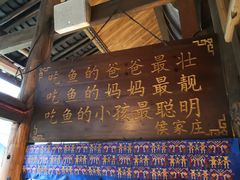 吃鱼的爸爸最壮
吃鱼的妈妈最靓
吃鱼的小孩最聪明
侯家庄